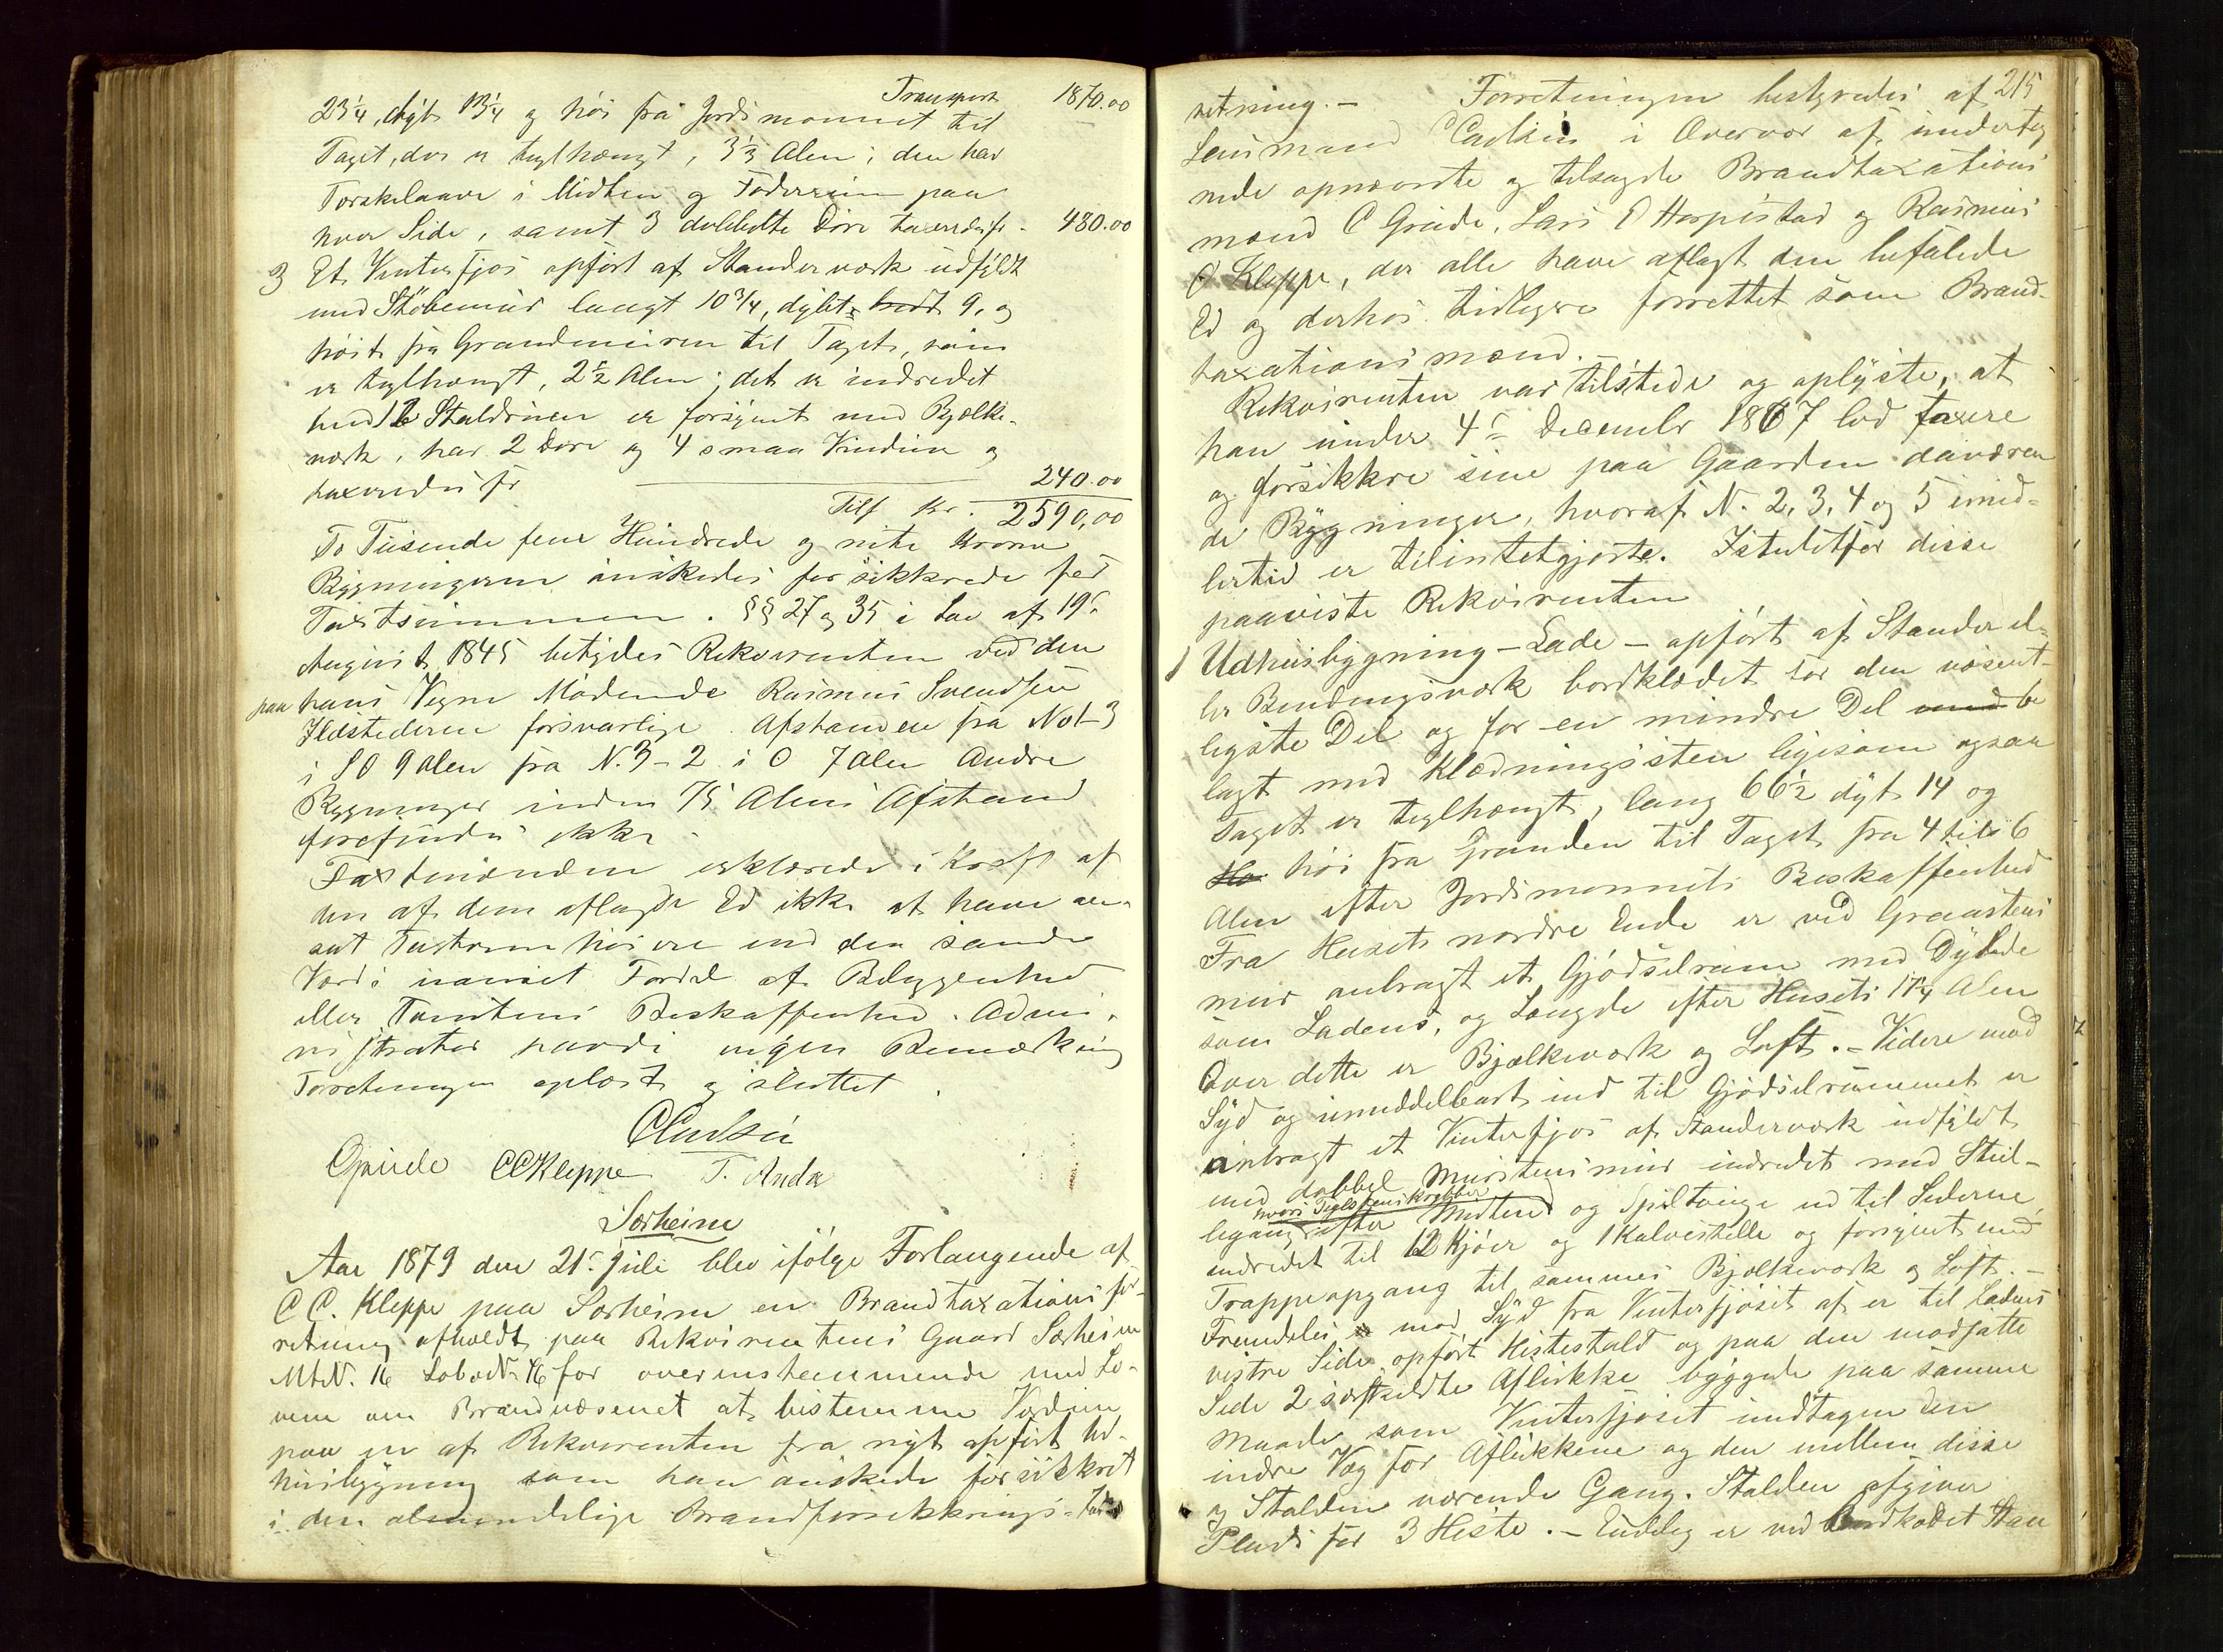 Transport 1870.00
23¼, dybt 13¼ og høi fra Jordsmonnet til
Taget, der er teglhængt, 3⅓ Alen; den har
Torskelaave i Midten og Foderrum paa
hver Side, samt 3 dobbelte Døre taxeredes for - 480.00
3 Et Vinterfjøs opført af Standerværk udfyldt
med Støbemuur langt 10¾, dybt bredt 9, og
høit fra Grundmuren til Taget, som
er teglhængt, 2½ Alen; det er indredet
med 12 Staldrum er forsynet med Bjælke-
værk, har 2 Døre og 4 smaa Vinduer og
taxeredes for 240.00
Tils Kr. 2590,00
To Tusende fem Hundrede og niti Kroner
Bygningerne ønskedes forsikkrede for
Taxtsummen. §§ 27 og 35 i Lov af 19d.
August 1845 betydes Rekvirenten ved den
paa hans Vegne Mødende Rasmus Svendsen
Ildstederne forsvarlige. Afstanden fra No 1-3
i SO 9 Alen fra N. 3-2 i O 7 Alen Andre
Bygninger inden 75 Alens Afstand
forefindes ikke.
Taxtmændene erklærede i Kraft af
den af dem aflagte Ed ikke at have an-
sat Taxterne høiere end den sande
Værdi uanset Fordel af Beliggenhed
eller Tomtens Beskaffenhed. Admi-
nistrator havde ingen Bemærkning
Forretningen oplæst og sluttet.
CCarlsen
OGrude CCKleppe T. Anda
Særheim
Aar 1879 den 21d. Juli blev ifølge Forlangende af
C C. Kleppe paa Særheim en Brandtaxationsfor-
retning afholdt paa Rekvirentens Gaard Særheim
MtN. 16 LøbeN. 46 for overensstemmende med Lo-
vene om Brandvæsenet at bestemme Værdien
paa en af Rekvirenten fra nyt opført Ud-
husbygning som han ønskede forsikkret
i den almindelige Brandforsikkrings-Ind-
215
retning. - Forretningen bestyredes af
Lensmand C Carlsen i Overvær af underteg
nede opnævnte og tilsagte Brandtaxations
mænd O Grude, Lars E Horpestad og Rasmus
O Kleppe, der alle have aflagt den befalede
Ed og derhos tidligere forrettet som Brand-
taxationsmænd. -
Rekvirenten var tilstede og oplyste, at
han under 4d December 1867 lod taxere
og forsikkre sine paa Gaarden daværen
de Bygninger, hvoraf N. 2, 3, 4 og 5 imid-
lertid er tilintetgjorte. Istedetfor disse
paaviste Rekvirenten
1 Udhusbygning - Lade - opført af Stander el-
ler Bindingsværk bordklædt for den væsent-
ligste Del og for en mindre Del med be
lagt med Klædningssten ligesom ogsaa
Taget er teglhængt, lang 66½ dyb 14 og
Ho høi fra Grunden til Taget fra 4 til 6
Alen efter Jordsmonnets Beskaffenhed
Fra Husets nordre Ende er ved Graastens
mur anbragt et Gjødselrum med Dybde
som Ladens, og Længde efter Husets 17¼ Alen
Over dette er Bjælkeværk og Loft. - Videre mod
Syd og umiddelbart ind til Gjødselrummet er
anbragt et Vinterfjøs af Standerværk udfyldt
med dobbel Murstensmur indredet med Steel-
hvori Teglstenskrybber
legang efter Midten og Spiltouge ud til Siderne
indredet til 12 Kjøer og 1 Kalvestelle og forsynet med
Trappeopgang til sammes Bjælkeværk og Loft. -
Fremdeles er mod Syd fra Vinterfjøset af er til Ladens
vestre Side opført Hestestald og paa den modsatte
Side 2 særskildte Aflukke byggede paa samme
Maade som Vinterfjøset undtagen den
indre Væg for Aflukkene og den mellem disse
og Stalden værende Gang. Stalden afgiver
Plads for 3 Heste. - Endelig er ved Bordkædet Stan